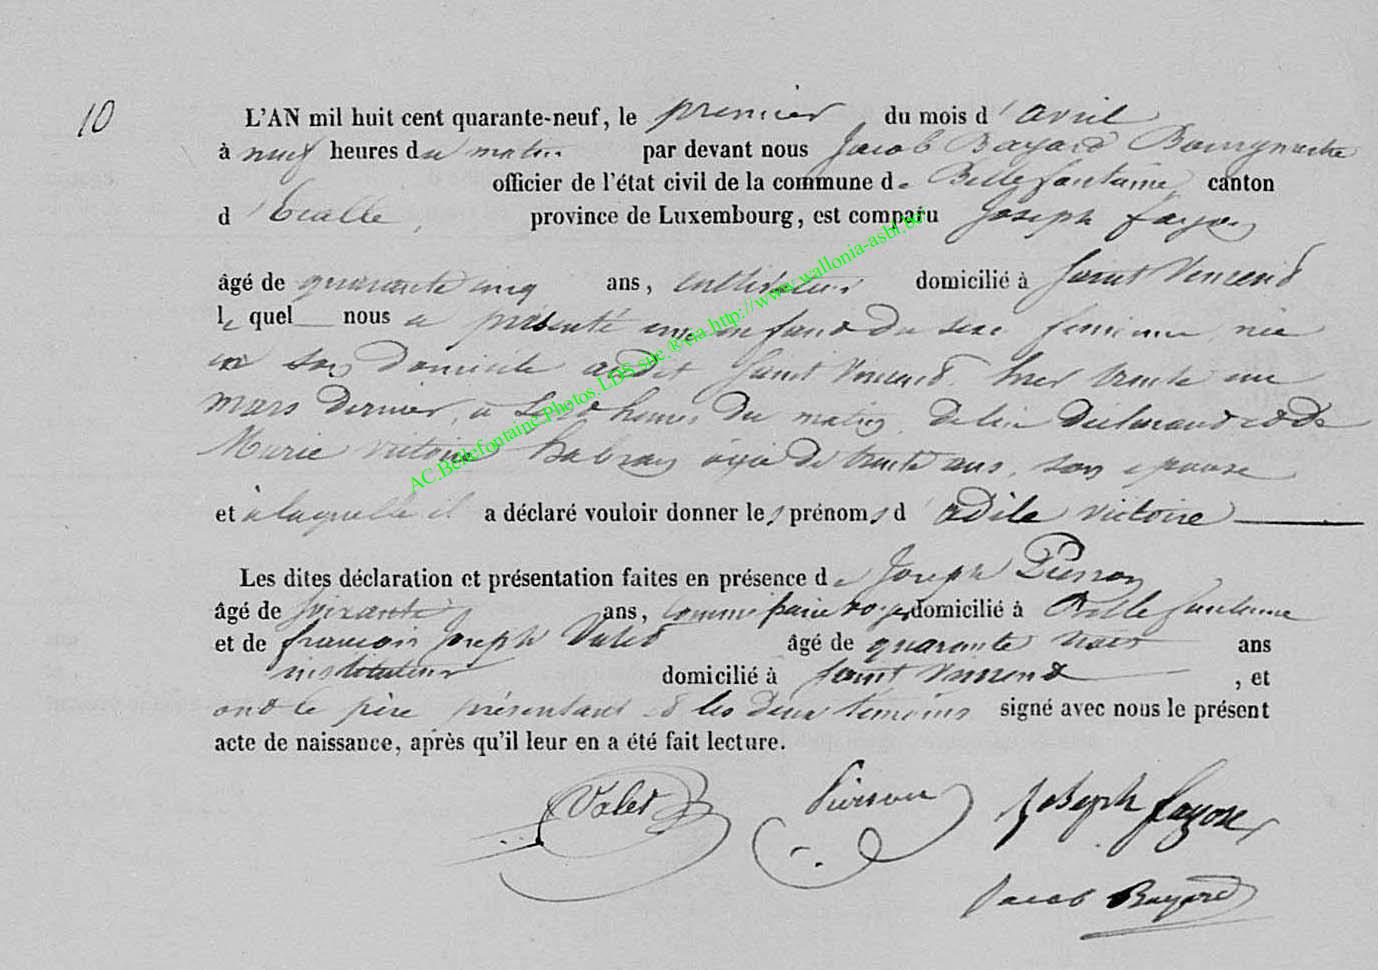 10
L'AN mil huit cent quarante-neuf, le premier du mois d'avril
à neuf heures du matin par devant nous Jacob Bayard Bourgmestre
officier de l'état civil de la commune de Bellefontaine canton
d' Etalle, province de Luxembourg, est comparu Joseph fayon
âgé de quarante cinq ans, cultivateur domicilié à Saint Vincend
lequel nous a présenté une enfant du sexe feminin née
en son Domicile audit Saint Vincend hier trente un
mars dernier, à heures du matin, de lui déclarant et de
Marie victoire Habran agée de trente ans, son épouse
et à laquelle il a déclaré vouloir donner les prénoms d' adile victoire
Les dites déclaration et présentation faites en présence de Joseph Pierson
âgé de soixante ans, Commissaire voyer domicilié à Bellefontaine
et de francois Joseph Valet âgé de quarante trois ans
instituteur domicilié à Saint Vincend , et
ont le père présentant et les deux témoins signé avec nous le présent
acte de naissance, après qu'il leur en a été fait lecture.
Valet Pierson Joseph fayon
Jacob Bayard
AC.Bellefontaine.Photos.LDS.sue.®via.http://www.wallonia-asbl.be